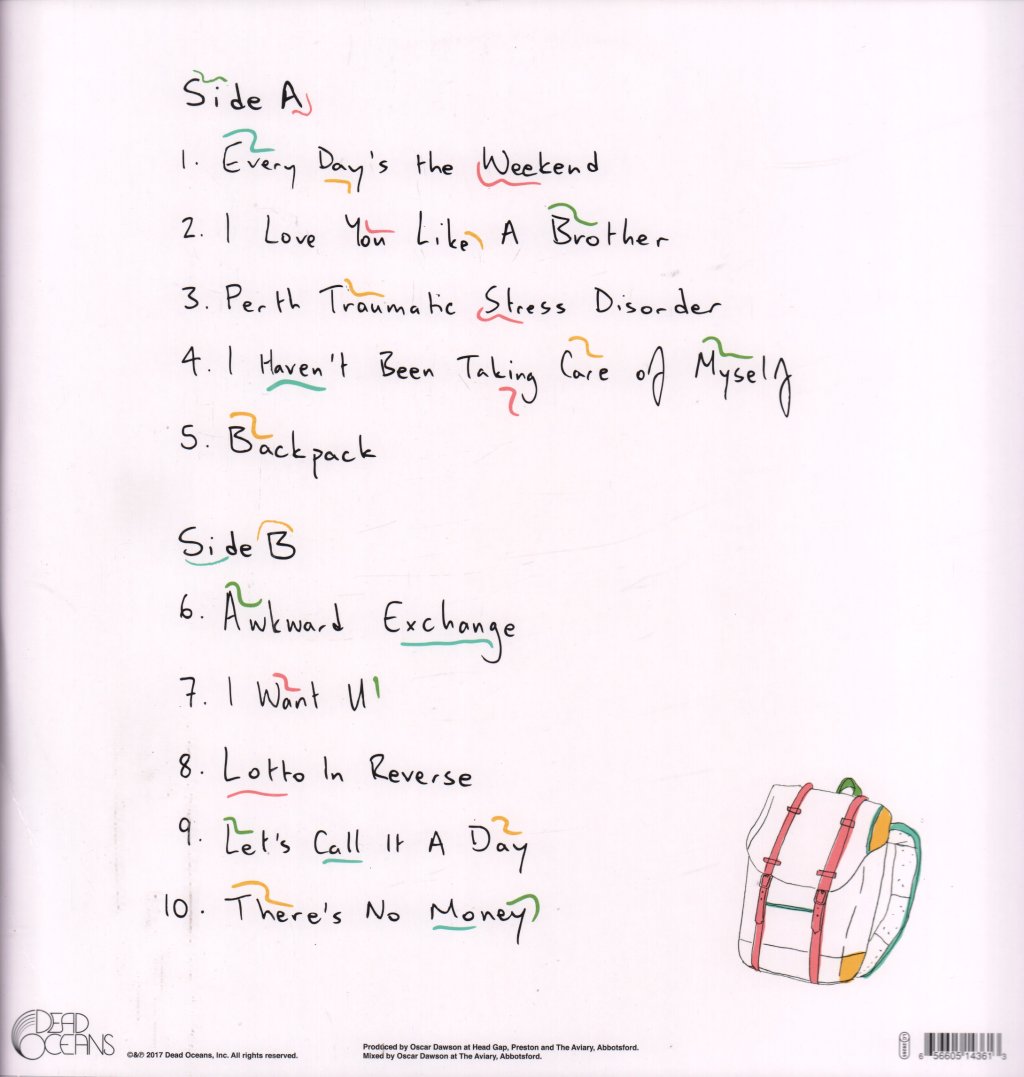 Side A
1. Every Day's the Weekend
2. I Love You Like A Brother
3. Perth Traumatic Stress Disorder
4. I Haven't Been Taking Care of Myself
5. Backpack
Side B
6. Awkward Exchange
7. I Want U
8. Lotto In Reverse
9. Let's Call It A Day
10. There's No Money
DEAD
OCEANS
©&℗ 2017 Dead Oceans, Inc. All rights reserved.
Produced by Oscar Dawson at Head Gap, Preston and The Aviary, Abbotsford.
Mixed by Oscar Dawson at The Aviary, Abbotsford.
6 56605 14361 3